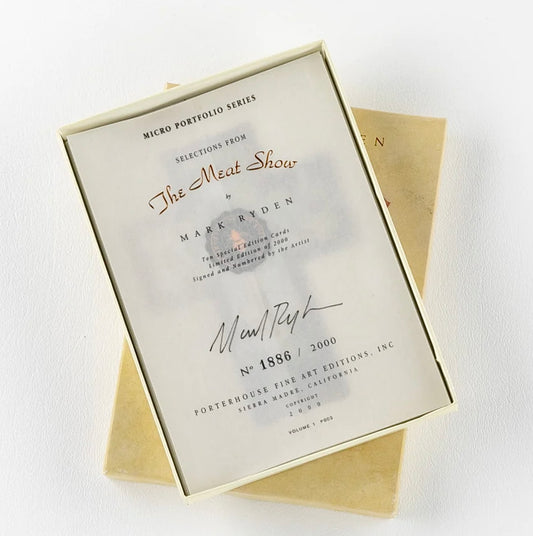 MICRO PORTFOLIO SERIES
SELECTIONS FROM
The Meat Show
by
MARK RYDEN
Ten Special Edition Cards
Limited Edition of 2000
Signed and Numbered by the Artist
Mark Ryden
Nº 1886 / 2000
PORTERHOUSE FINE ART EDITIONS, INC
SIERRA MADRE, CALIFORNIA
COPYRIGHT
2000
VOLUME 1 P002
DEN